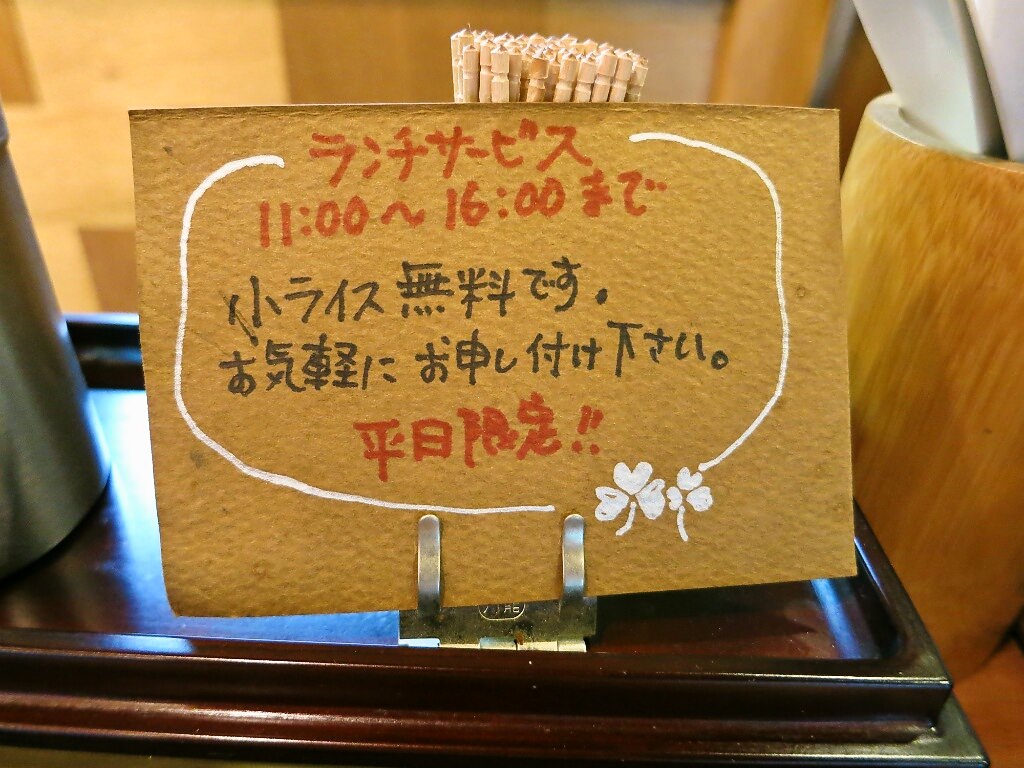 ランチサービス
11:00〜16:00まで
小ライス無料です。
お気軽にお申し付け下さい。
平日限定!!